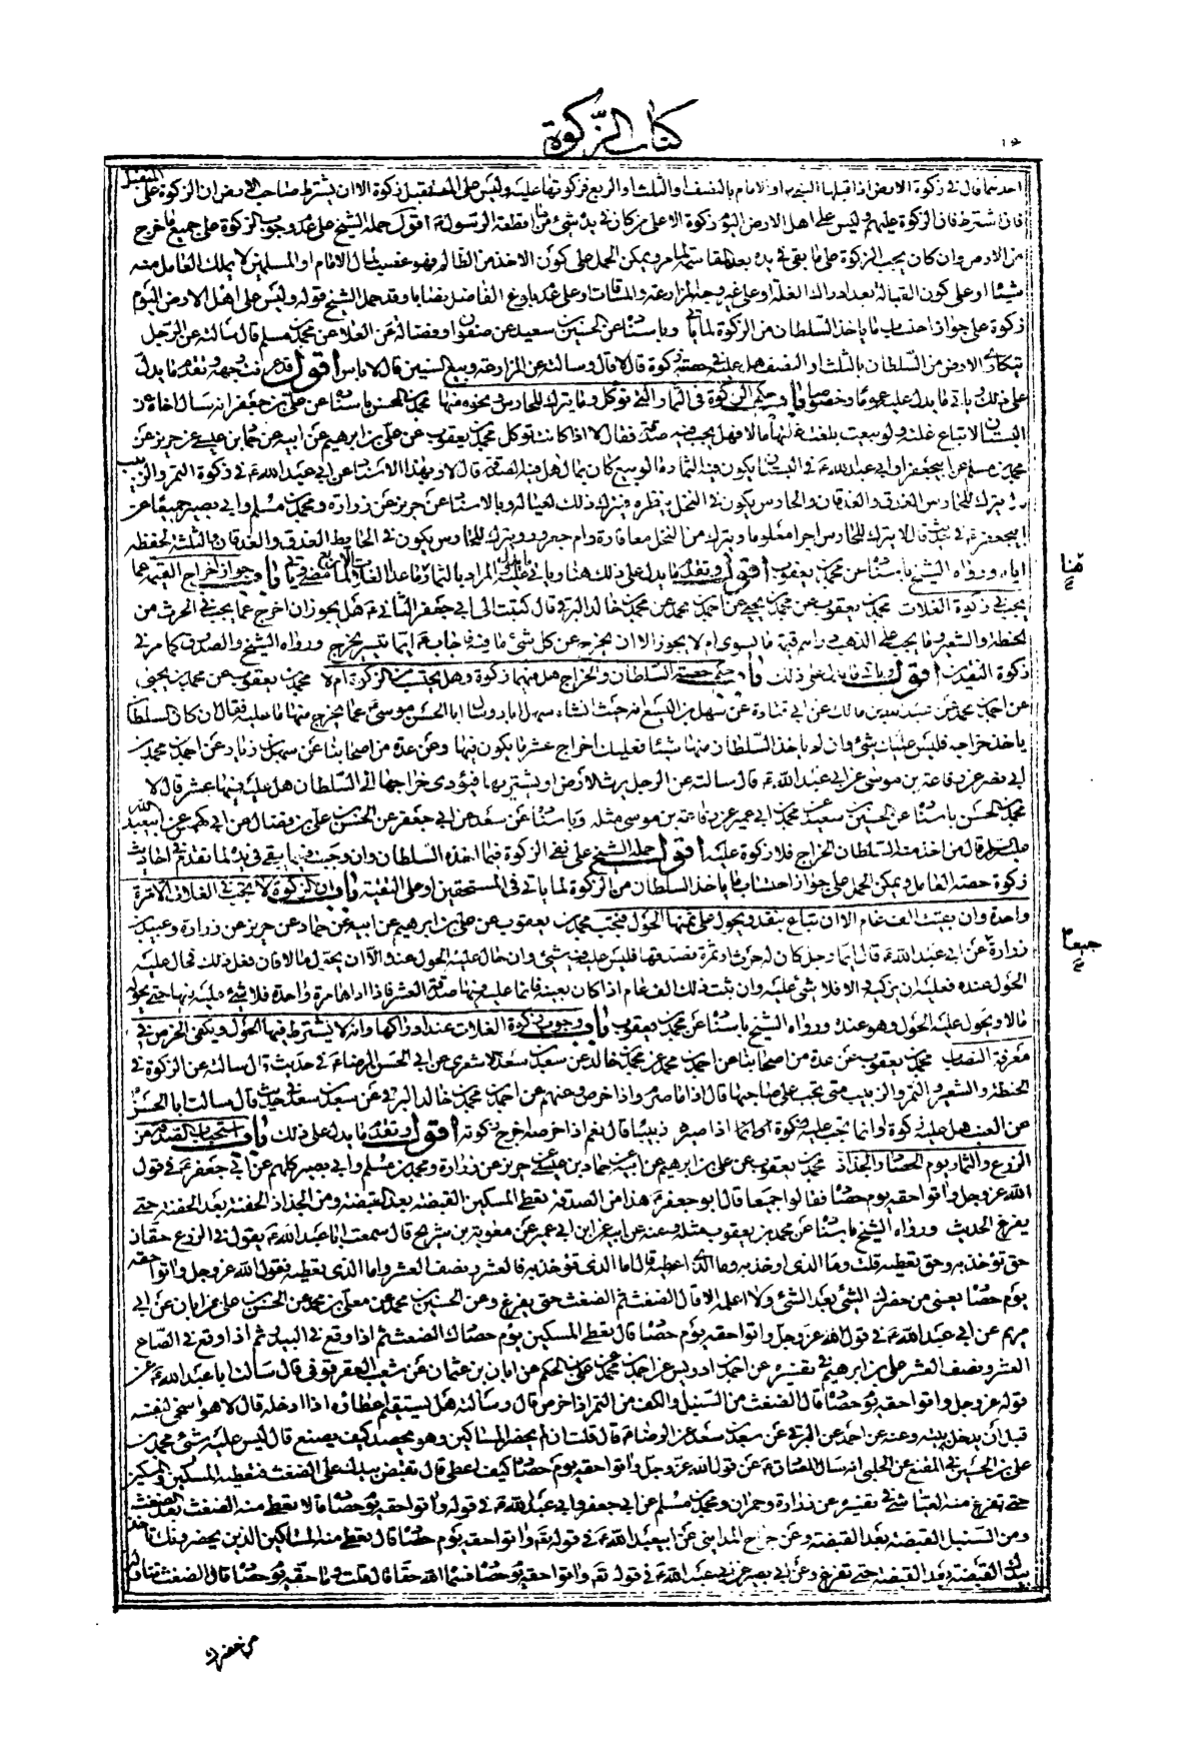 كتاب الزكوة
احدهما قال في زكوة الارض اذا قبلها النبي او الامام بالنصف او الثلث او الربع فزكوتها عليه وليس على المتقبل زكوة الا ان يشترط صاحب الارض ان الزكوة على المتقبل
فان اشترط فان الزكوة عليهم وليس على اهل الارض اليوم زكوة الا على من كان في يده شئ مما اقطعه الرسول اقول حمله الشيخ على عدم وجوب الزكوة على جميع ما خرج
من الارض وان كان يجب الزكوة على ما بقى في يده بعد المقاسمة لما مر ويمكن الحمل على كون الاخذ من الظالم فهو غصب لمال الامام او المسلمين لا يملك العامل منه
شيئا او على كون القبالة بعد ادراك الغلة او على غيره وجه المزارعة والمساقات او على عدم بلوغ الفاضل نصابا وقد حمل الشيخ قوله وليس على اهل الارض اليوم
زكوة على جواز احتساب ما ياخذ السلطان من الزكوة لما ياتي وباسناده عن الحسين بن سعيد عن صفوان وفضالة عن العلا عن محمد بن مسلم قال سالته عن الرجل
يتكارى الارض من السلطان بالثلث او النصف هل عليه في حصته زكوة قال لا قال وسالته عن المزارعة وبيع السنين قال لا باس اقول قد عرفت وجهه وتقدم ما يدل
على ذلك وياتي ما يدل عليه عموما وخصوصا باب حكم الزكوة في الثمار التي تؤكل وما يترك للحارس ونحوه منها محمد بن الحسن باسناده عن علي بن جعفر انه سال اخاه عن
البستان لا تباع غلته ولو بيعت بلغت غلتها مالا فهل يجب فيه صدقة فقال لا اذا كانت تؤكل محمد بن يعقوب عن علي بن ابرهيم عن ابيه عن حماد بن عيسى عن حريز عن
محمد بن مسلم عن ابي جعفر او ابي عبد الله ع في البستان يكون فيه الثمار ما لو بيع كان بمال هل فيه الصدقة قال لا وبهذا الاسناد عن ابي عبد الله ع في زكوة التمر والزبيب
قال يترك للحارس العذق والعذقان والحارس يكون في النخل ينظره فيترك ذلك لعياله وبالاسناد عن حريز عن زرارة ومحمد بن مسلم وابي بصير جميعا عن
ابي جعفر ع في حديث قال لا يترك للحارس اجرا معلوما ويترك من النخل معافارة وام جعرور ويترك للحارس يكون في الحايط العذق والعذقان والثلثة لحفظه
اياه ورواه الشيخ باسناده عن محمد بن يعقوب اقول وتقدم ما يدل على ذلك هنا وياتي باب جواز اخراج القيمة عما
يجب في زكوة الغلات محمد بن يعقوب عن محمد بن يحيى عن احمد بن محمد عن محمد بن خالد البرقي قال كتبت الى ابي جعفر الثاني ع هل يجوز ان اخرج عما يجب في الحرث من
الحنطة والشعير وما يجب على الذهب دراهم قيمة ما يسوى ام لا يجوز الا ان يخرج عن كل شئ ما فيه فاجاب ع ايما تيسر يخرج ورواه الشيخ والصدوق كما مر في
زكوة النقدين اقول وياتي ما يدل على نحو ذلك باب حكم حصة السلطان والخراج هل فيهما زكوة وهل يحتسب من الزكوة ام لا محمد بن يعقوب عن محمد بن يحيى
عن احمد بن محمد عن محمد بن مالك عن ابي قتادة عن سهل بن اليسع انه حيث انشاء سهل اباد وسال ابا الحسن موسى ع عما يخرج منها ما عليه فقال ان كان السلطان
ياخذ خراجه فليس عليك شئ وان لم ياخذ السلطان منها شيئا فعليك اخراج عشر ما يكون فيها وعن عدة من اصحابنا عن سهل بن زياد عن احمد بن محمد بن
ابي نصر عن رفاعة بن موسى عن ابي عبد الله ع قال سالته عن الرجل يرث الارض او يشتريها فيؤدي خراجها الى السلطان هل عليه فيها عشر قال لا
محمد بن الحسن باسناده عن الحسين بن سعيد عن محمد بن ابي عمير عن رفاعة بن موسى مثله وباسناده عن سعد عن ابي جعفر عن الحسن بن علي بن فضال عن ابي كهمس عن ابي عبد الله
ع قال من اخذ منه السلطان الخراج فلا زكوة عليه اقول حمله الشيخ على نفي الزكوة فيما اخذه السلطان وان وجبت فيما يبقى في يده لما تقدم في احاديث
زكوة حصة العامل ويمكن الحمل على جواز احتساب ما ياخذ السلطان من الزكوة لما ياتي في المستحقين او على التقية باب ان الزكوة لا يجب في الغلات الا مرة
واحدة وان بقيت الف عام الا ان تباع بنقد ويحول على ثمنها الحول فيجب محمد بن يعقوب عن علي بن ابرهيم عن ابيه عن حماد عن حريز عن زرارة وعبيد بن
زرارة عن ابي عبد الله ع قال ايما رجل كان له حرث او ثمرة فصدقها فليس عليه فيه شئ وان حال عليه الحول عنده الا ان يحول مالا فان فعل ذلك فحال عليه
الحول عنده فعليه ان يزكيه والا فلا شئ عليه وان ثبت ذلك الف عام اذا كان بعينه فانما عليه فيها صدقة العشر فاذا اداها مرة واحدة فلا شئ عليه فيها حتى يحوله
مالا ويحول عليه الحول وهو عنده ورواه الشيخ باسناده عن محمد بن يعقوب باب وجوب زكوة الغلات عند ادراكها وانه لا يشترط فيها الحول ويكفي الخرص في
معرفة النصاب محمد بن يعقوب عن عدة من اصحابنا عن احمد بن محمد عن محمد بن خالد عن سعد بن سعد الاشعري عن ابي الحسن الرضا ع في حديث قال سالته عن الزكوة في
الحنطة والشعير والتمر والزبيب متى تجب على صاحبها قال اذا ما صرم واذا خرص وعنهم عن احمد بن محمد بن خالد البرقي عن سعد بن سعد في حديث قال سالت ابا الحسن
عن العنب هل عليه زكوة او انما يجب عليه زكوة اذا صيره زبيبا قال نعم اذا خرصه اخرج زكوته اقول وتقدم ما يدل على ذلك باب استحباب الصدقة من
الزرع والثمار يوم الحصاد والجذاذ محمد بن يعقوب عن علي بن ابرهيم عن ابيه عن حماد بن عيسى عن حريز عن زرارة ومحمد بن مسلم وابي بصير كلهم عن ابي جعفر ع في قول
الله عز وجل واتوا حقه يوم حصاده فقالوا جميعا قال ابو جعفر ع هذا من الصدقة تعطى المسكين القبضة بعد القبضة ومن الجذاذ الحفنة بعد الحفنة حتى
يفرغ الحديث ورواه الشيخ باسناده عن محمد بن يعقوب مثله وعنه عن ابيه عن ابن ابي عمير عن معوية بن شريح قال سمعت ابا عبد الله ع يقول في الزرع حقان
حق تؤخذ به وحق تعطيه قلت وما الذي اوخذ به وما الذي اعطيه قال اما الذي تؤخذ به فالعشر ونصف العشر واما الذي تعطيه فقول الله عز وجل واتوا حقه
يوم حصاده يعني من حضرك الشئ بعد الشئ ولا اعلمه الا قال الضغث ثم الضغث حتى يفرغ وعن الحسين بن محمد عن معلى بن محمد عن الحسن بن علي عن ابان عن ابي
مريم عن ابي عبد الله ع في قول الله عز وجل واتوا حقه يوم حصاده قال تعطي المسكين يوم حصادك الضغث ثم اذا وقع في البيدر ثم اذا وقع في الصاع
العشر ونصف العشر علي بن ابرهيم في تفسيره عن احمد بن ادريس عن احمد بن محمد عن علي بن الحكم عن ابان بن عثمان عن شعيب العقرقوفي قال سالت ابا عبد الله ع عن
قوله عز وجل واتوا حقه يوم حصاده قال الضغث من السنبل والكف من التمر اذا خرص قال وسالته هل يستقيم اعطاؤه اذا ادخله قال لا هو اسخى لنفسه
قبل ان يدخل بيته وعنه عن احمد عن البرقي عن سعد بن سعد عن الرضا ع قال قلت ان لم يحضر المساكين وهو يحصد كيف يصنع قال ليس عليه شئ محمد بن
علي بن الحسين في المقنع عن الحلبي انه سال الصادق ع عن قول الله عز وجل واتوا حقه يوم حصاده كيف اعطي قال تقبض بيدك على الضغث فتعطيه المسكين والمسكين
حتى تفرغ منه العياشي في تفسيره عن زرارة وحمران ومحمد بن مسلم عن ابي جعفر وابي عبد الله ع في قوله واتوا حقه يوم حصاده قالا تعطي منه الضغث بعد الضغث
ومن السنبل القبضة بعد القبضة وعن جراح المدايني عن ابي عبد الله ع في قوله تع واتوا حقه يوم حصاده قال تعطي منه المساكين الذين يحضرونك تاخذ
بيدك القبضة بعد القبضة حتى تفرغ وعن ابي بصير عن ابي عبد الله ع في قوله تع واتوا حقه يوم حصاده فسماه الله حقا قال قلت وما حقه يوم حصاده قال الضغث تناوله
من حضرك
جميعا